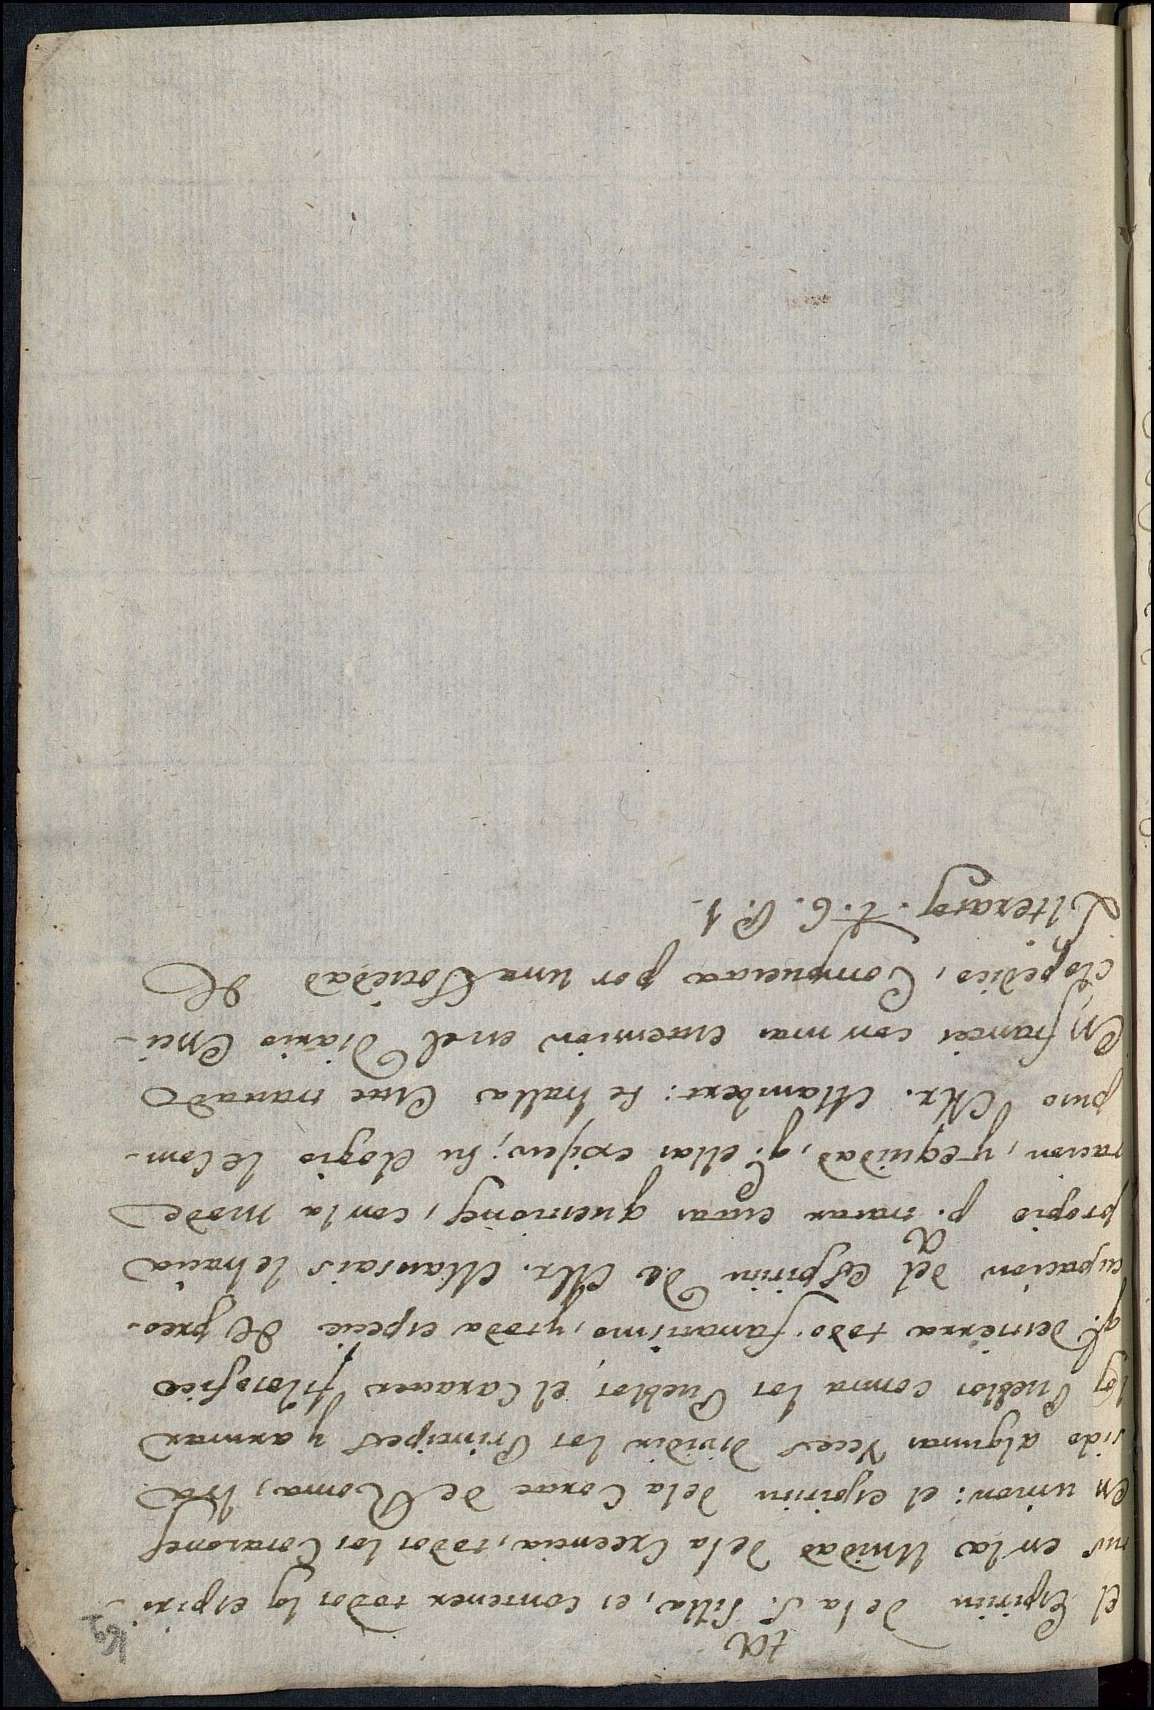 el Espiritu de la S.ta Silla, es contener todos los espiri-
tus en la Unidad de la Creencia, todos los Corazones
en union: el espiritu de la Corte de Roma, ha
sido algunas Veces dividir los Principes y armar
los Pueblos contra los Pueblos, el Caracter filosofico
q.e destierra todo fanatismo, y toda especie de preo-
cupacion del Espiritu de Mr. Marsais le hacia
propio p.a tratar estas questiones, con la mode
racion, y equidad, q.e ellas exijen; Su elogio le com-
puso Mr. Alambert: se halla Este tratado
en frances con mas extension en el Diario Enci-
clophedico, Compuesto por una Sociedad de
Literatos. t. 6. P. 1.
169